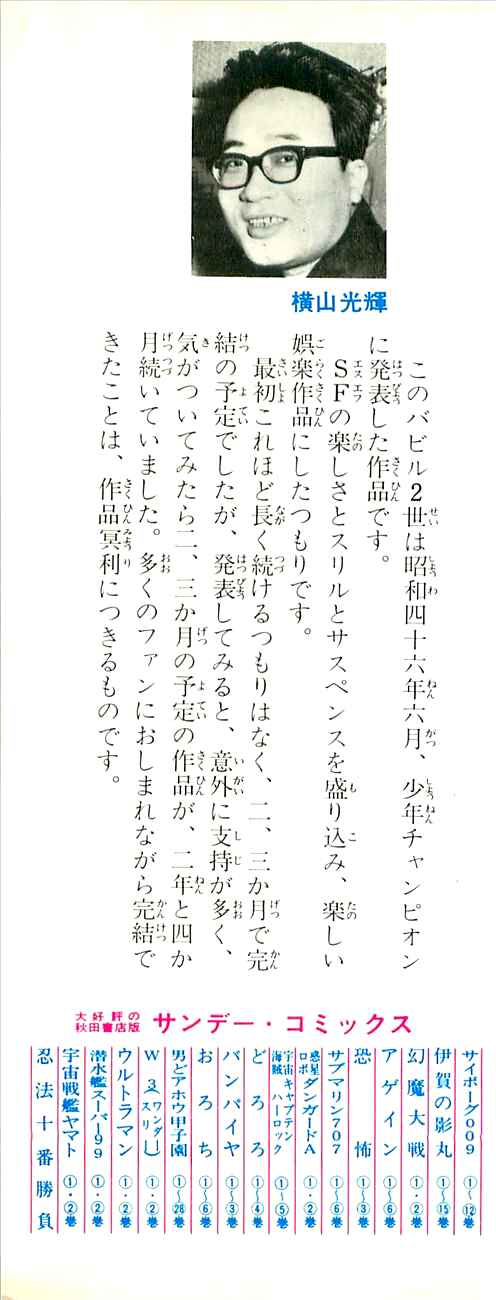 横山光輝
このバビル2世は昭和四十六年六月、少年チャンピオン
に発表した作品です。
SFの楽しさとスリルとサスペンスを盛り込み、楽しい
娯楽作品にしたつもりです。
最初これほど長く続けるつもりはなく、二、三か月で完
結の予定でしたが、発表してみると、意外に支持が多く、
気がついてみたら二、三か月の予定の作品が、二年と四か
月続いていました。多くのファンにおしまれながら完結で
きたことは、作品冥利につきるものです。
大好評の
秋田書店版
サンデー・コミックス
サイボーグ009 ①〜⑫巻
伊賀の影丸 ①〜⑮巻
幻魔大戦 ①・②巻
アゲイン ①〜⑥巻
恐怖 ①〜③巻
サブマリン707 ①〜⑥巻
惑星ロボ ダンガードA ①・②巻
宇宙キャプテン海賊 ハーロック ①〜⑤巻
どろろ ①〜④巻
バンパイヤ ①〜③巻
おろち ①〜⑥巻
男どアホウ甲子園 ①〜㉘巻
W3(ワンダースリー) ①・②巻
ウルトラマン ①・②巻
潜水艦スーパー99 ①・②巻
宇宙戦艦ヤマト ①・②巻
忍法十番勝負